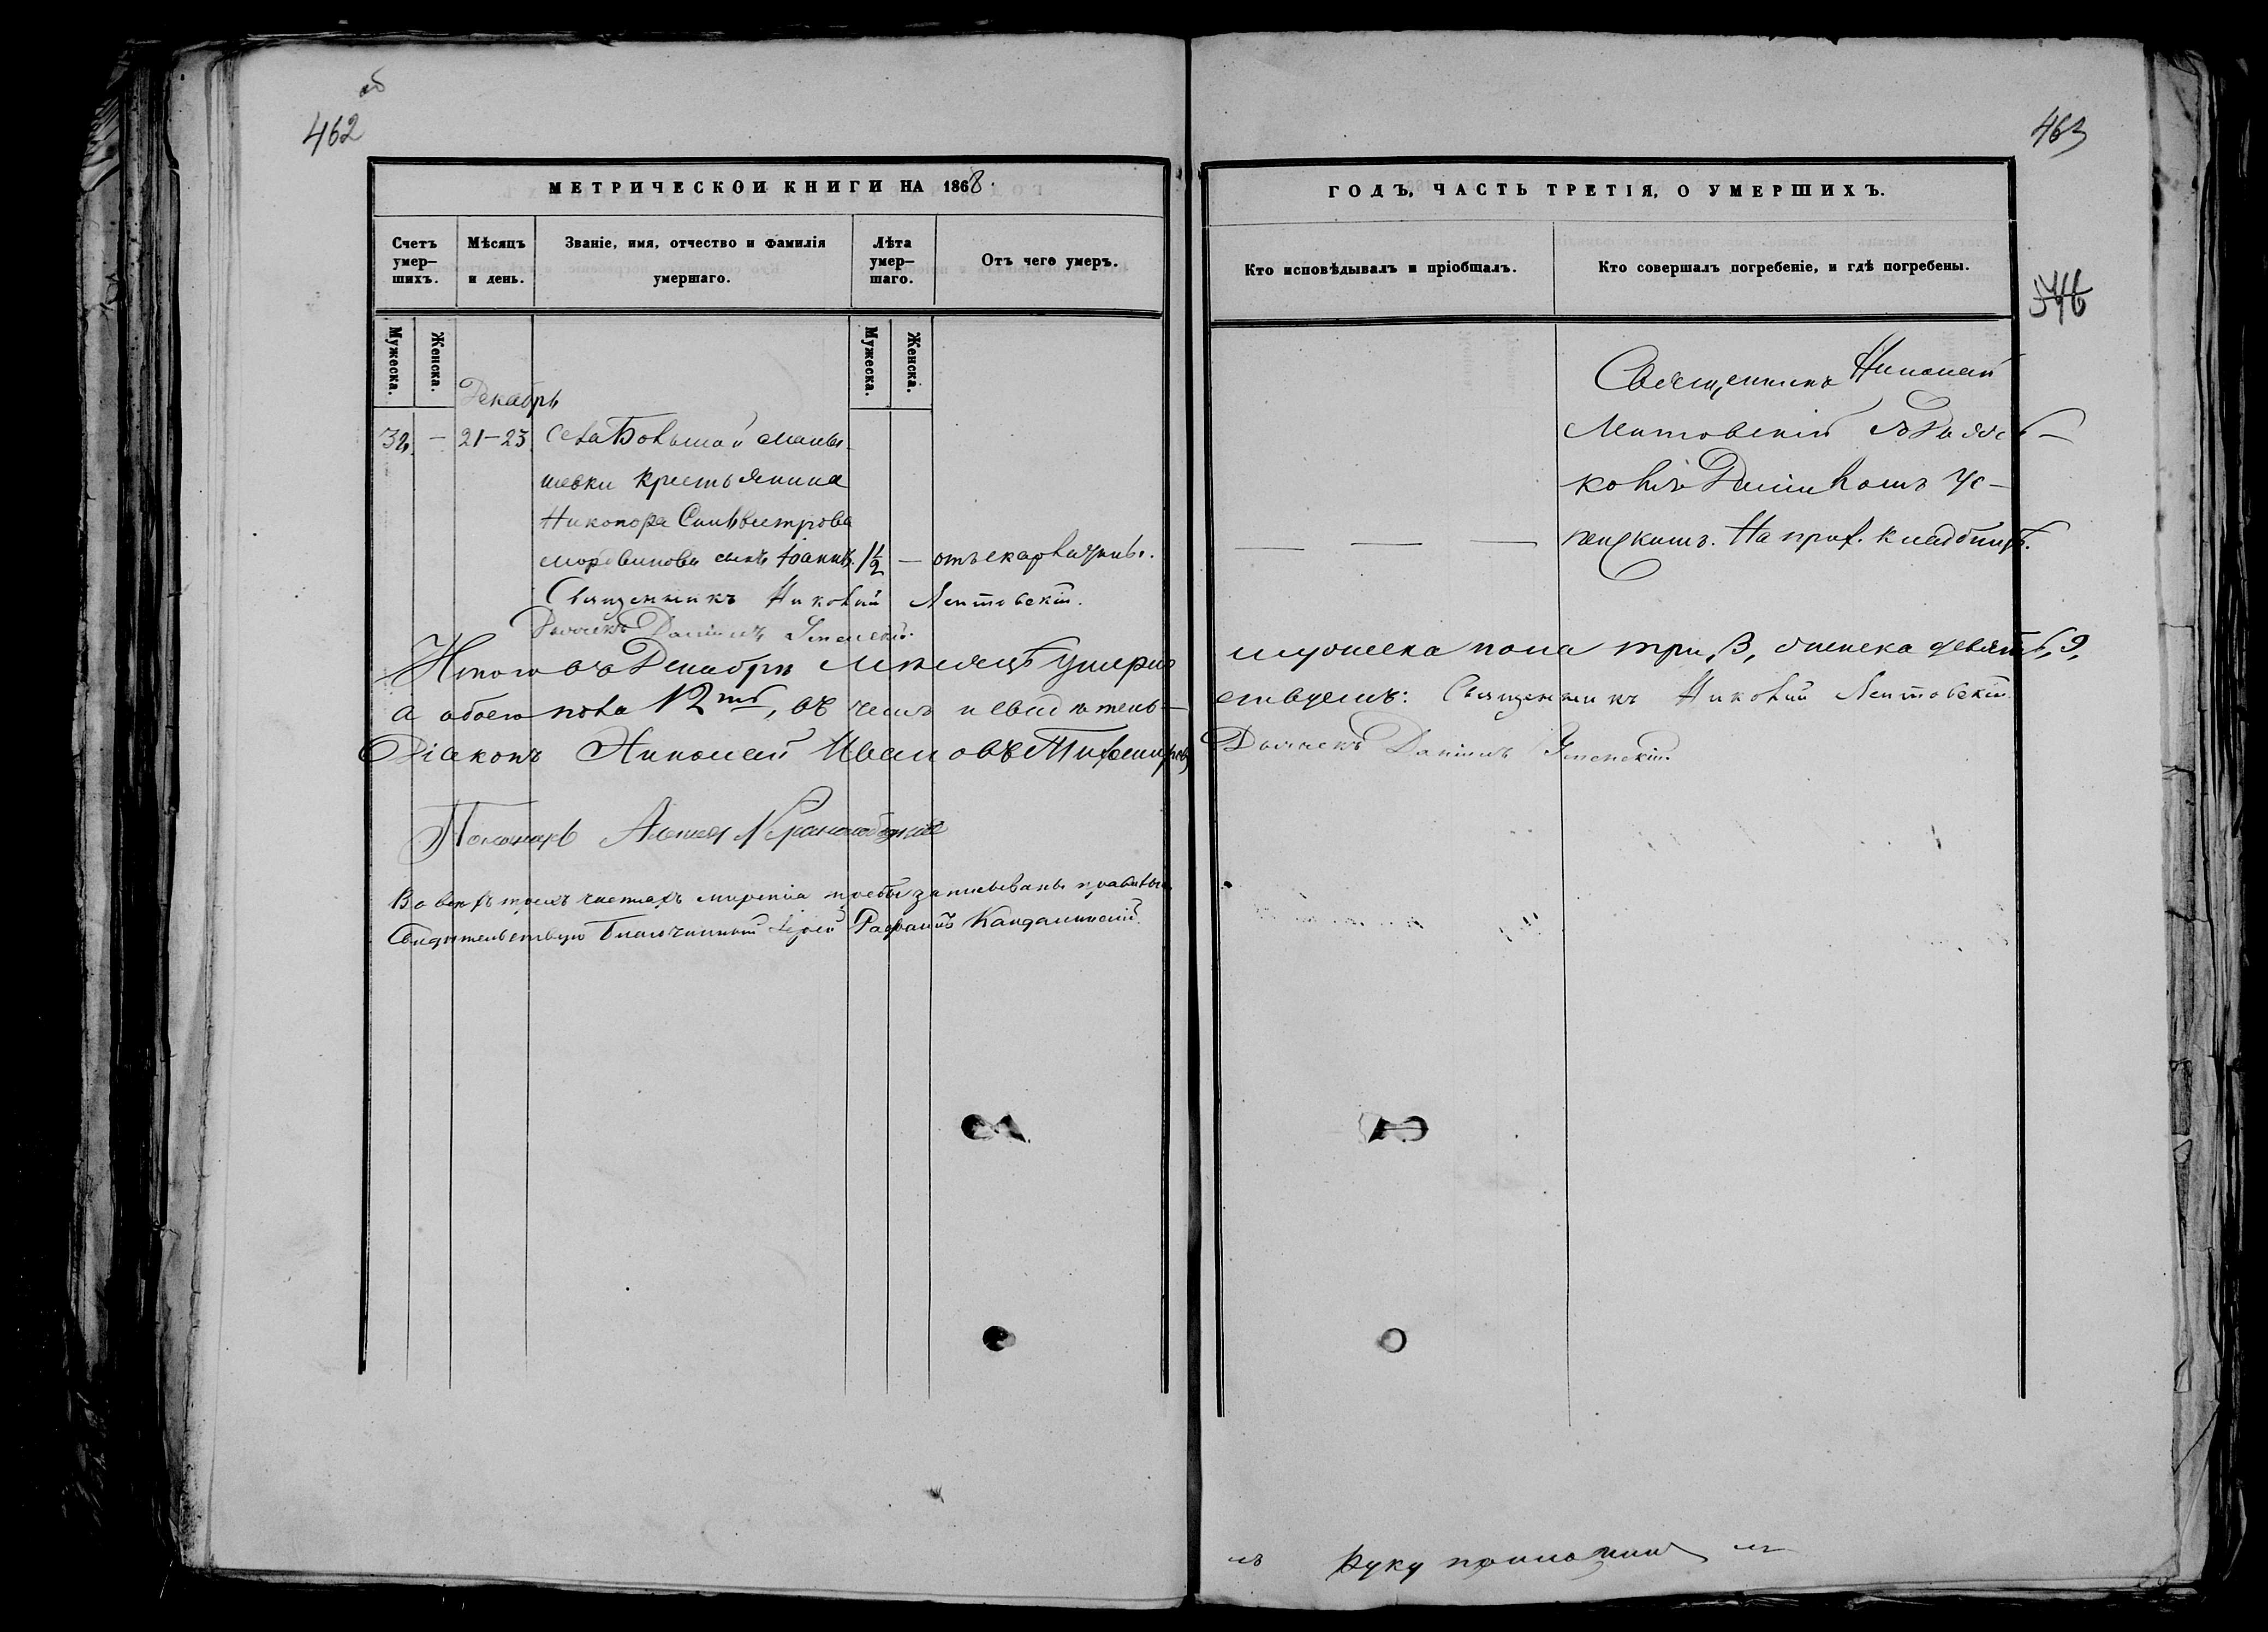 об
462
МЕТРИЧЕСКОЙ КНИГИ НА 1868.
Счетъ умер-
шихъ.
Мѣсяцъ
и день.
Званіе, имя, отчество и фамилія
умершаго.
Лѣта
умер-
шаго.
Отъ чего умеръ.
Мужеска.
Женска.
Мужеска.
Женска.
Декабрь
32. — 21-23 Села Большой
шевки крестьянина
Никонора Силвестрова
сынъ Іоаннъ. 1 1/2 — отъ скарлатины.
Священникъ Николай Лентовскій.
Дьячекъ Даніилъ Успенскій.
Итого въ Декабрѣ мѣсяцѣ умерло
а обоего пола 12ть, въ чемъ и свидѣтель-
Діаконъ Николай Ивановъ
Пономарь Алексей
Во всѣхъ трехъ частяхъ записываны правильно
Свидѣтельствую Благочинный Іерей Кандалинскій.
463
ГОДЪ, ЧАСТЬ ТРЕТІЯ, О УМЕРШИХЪ.
Кто исповѣдывалъ и пріобщалъ.
Кто совершалъ погребеніе, и гдѣ погребены.
346
Священникъ Николай
Лентовскій съ Дьяч-
комъ Даніиломъ Ус-
пенскимъ. На прих. кладбищѣ.
— — —
мужеска пола три, 3, женска девять, 9,
ствуемъ: Священникъ Николай Лентовскій.
Дьячекъ Даніилъ Успенскій.
Руку приложилъ